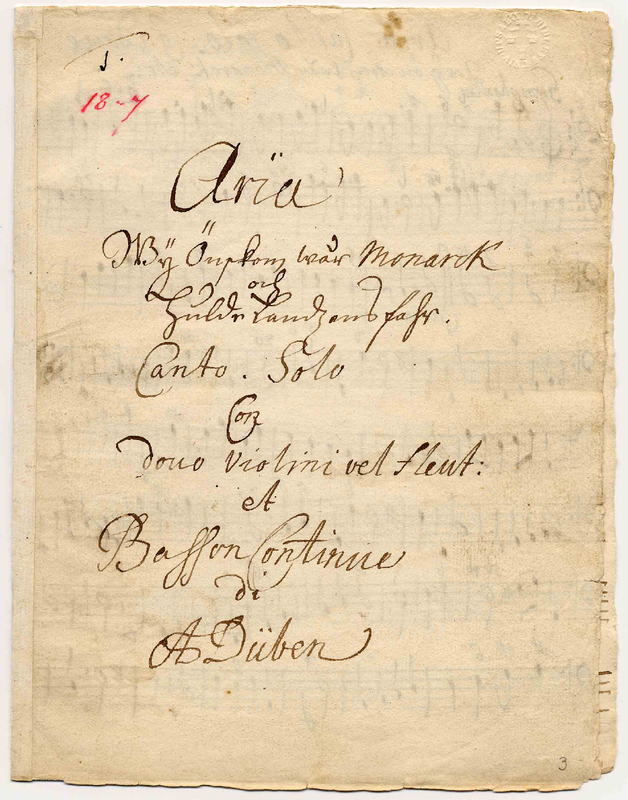 1.
18-7
Aria
Wÿ Önskom wår Monarck
och
hulde Landzens fahr.
Canto. Solo
Con
douo violini vel fleut:
et
Basson Continue
di
A Düben
3